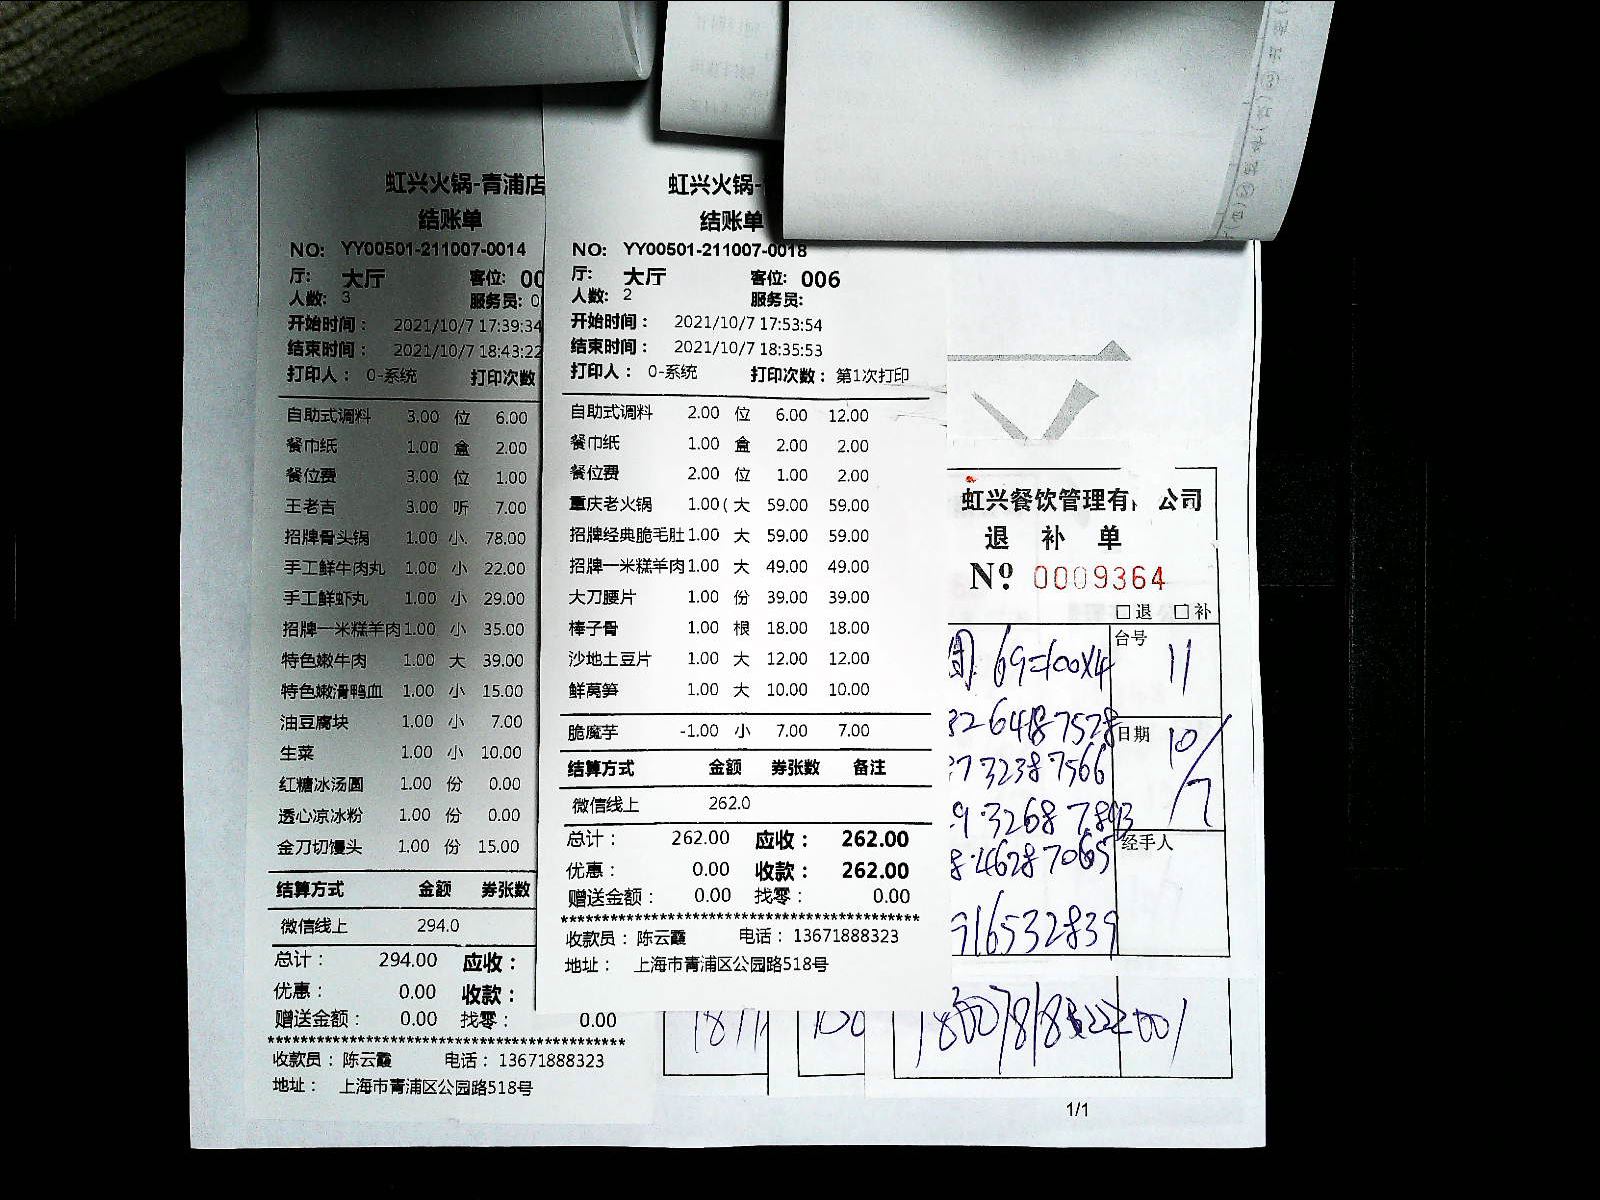 虹兴火锅-青浦店
结账单
NO: YY00501-211007-0014
厅: 大厅 客位: 00
人数: 3 服务员: 0
开始时间： 2021/10/7 17:39:34
结束时间： 2021/10/7 18:43:22
打印人： 0-系统 打印次数
自助式调料 3.00 位 6.00
餐巾纸 1.00 盒 2.00
餐位费 3.00 位 1.00
王老吉 3.00 听 7.00
招牌骨头锅 1.00 小 78.00
手工鲜牛肉丸 1.00 小 22.00
手工鲜虾丸 1.00 小 29.00
招牌一米糕羊肉 1.00 小 35.00
特色嫩牛肉 1.00 大 39.00
特色嫩滑鸭血 1.00 小 15.00
油豆腐块 1.00 小 7.00
生菜 1.00 小 10.00
红糖冰汤圆 1.00 份 0.00
透心凉冰粉 1.00 份 0.00
金刀切馒头 1.00 份 15.00
结算方式 金额 券张数
微信线上 294.0
总计： 294.00 应收：
优惠： 0.00 收款：
赠送金额： 0.00 找零： 0.00
******************************************
收款员： 陈云霞 电话： 13671888323
地址： 上海市青浦区公园路518号
虹兴火锅-
结账单
NO: YY00501-211007-0018
厅: 大厅 客位: 006
人数: 2 服务员:
开始时间： 2021/10/7 17:53:54
结束时间： 2021/10/7 18:35:53
打印人： 0-系统 打印次数：第1次打印
自助式调料 2.00 位 6.00 12.00
餐巾纸 1.00 盒 2.00 2.00
餐位费 2.00 位 1.00 2.00
重庆老火锅 1.00 ( 大 59.00 59.00
招牌经典脆毛肚 1.00 大 59.00 59.00
招牌一米糕羊肉 1.00 大 49.00 49.00
大刀腰片 1.00 份 39.00 39.00
棒子骨 1.00 根 18.00 18.00
沙地土豆片 1.00 大 12.00 12.00
鲜莴笋 1.00 大 10.00 10.00
脆魔芋 -1.00 小 7.00 7.00
结算方式 金额 券张数 备注
微信线上 262.0
总计： 262.00 应收： 262.00
优惠： 0.00 收款： 262.00
赠送金额： 0.00 找零： 0.00
******************************************
收款员： 陈云霞 电话： 13671888323
地址： 上海市青浦区公园路518号
虹兴餐饮管理有 公司
退 补 单
Nº 0009364
□退 □补
69=100X4 台号 11
日期 10/7
经手人
916532839
1/1